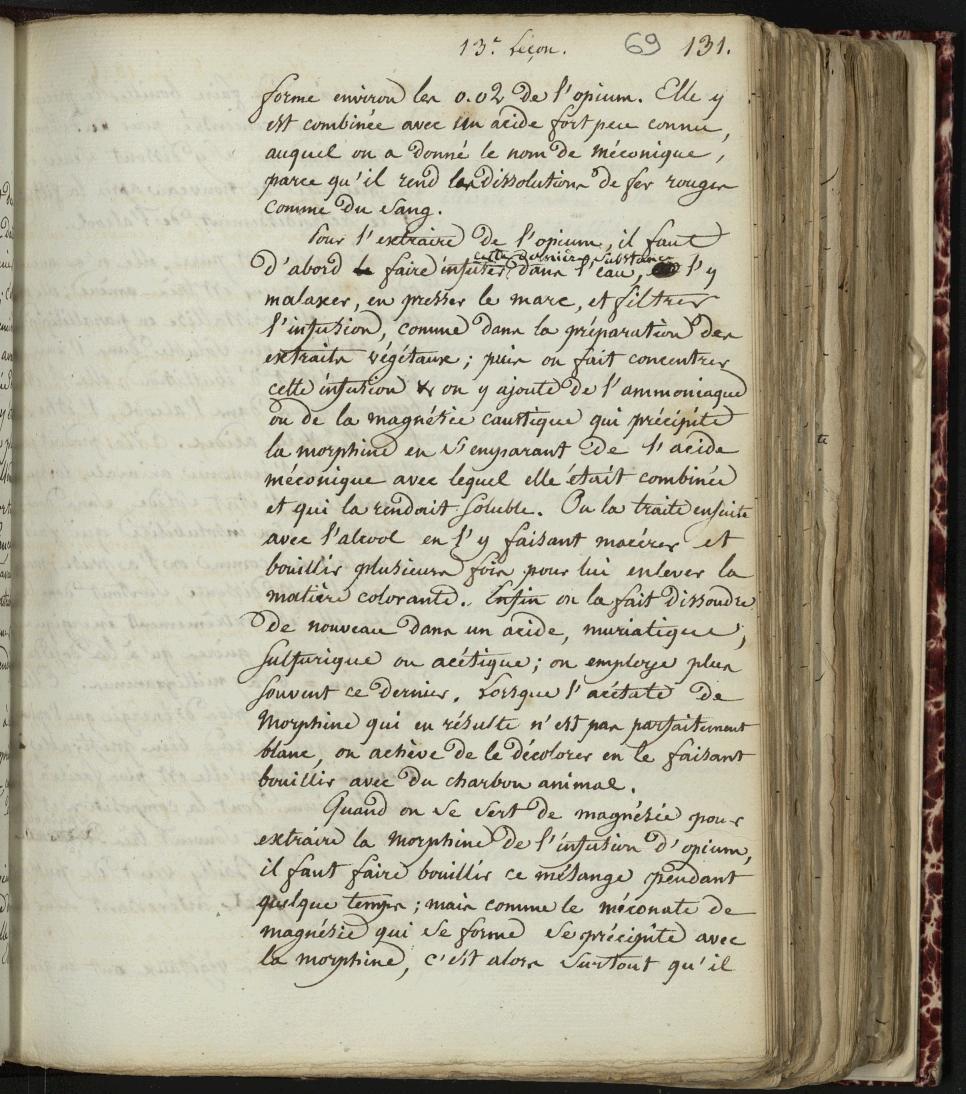 13.e Leçon. 69 131.
forme environ les 0.02 de l'opium. Elle y
est combinée avec un acide fort peu connu,
auquel on a donné le nom de méconique,
parce qu'il rend les dissolutions de fer rouges
comme du sang.
Pour l'extraire de l'opium, il faut
cette dernière substance
d'abord le faire infuser dans l'eau, l'y
malaxer, en presser le marc, et filtrer
l'infusion, comme dans la préparation des
extraits végétaux; puis on fait concentrer
cette infusion & on y ajoute de l'ammoniaque
ou de la magnésie caustique qui précipite
la morphine en s'emparant de l'acide
méconique avec lequel elle était combinée
et qui la rendait soluble. On la traite ensuite
avec l'alcool en l'y faisant macérer et
bouillir plusieurs fois pour lui enlever la
matière colorante. Enfin on la fait dissoudre
de nouveau dans un acide, muriatique,
sulfurique ou acétique; on employe plus
souvent ce dernier. Lorsque l'acétate de
Morphine qui en résulte n'est pas parfaitement
blanc, on achève de le décolorer en le faisant
bouillir avec du charbon animal.
Quand on se sert de magnésie pour
extraire la morphine de l'infusion d'opium,
il faut faire bouillir ce mélange pendant
quelque temps; mais comme le méconate de
magnésie qui se forme se précipite avec
la morphine, c'est alors surtout qu'il